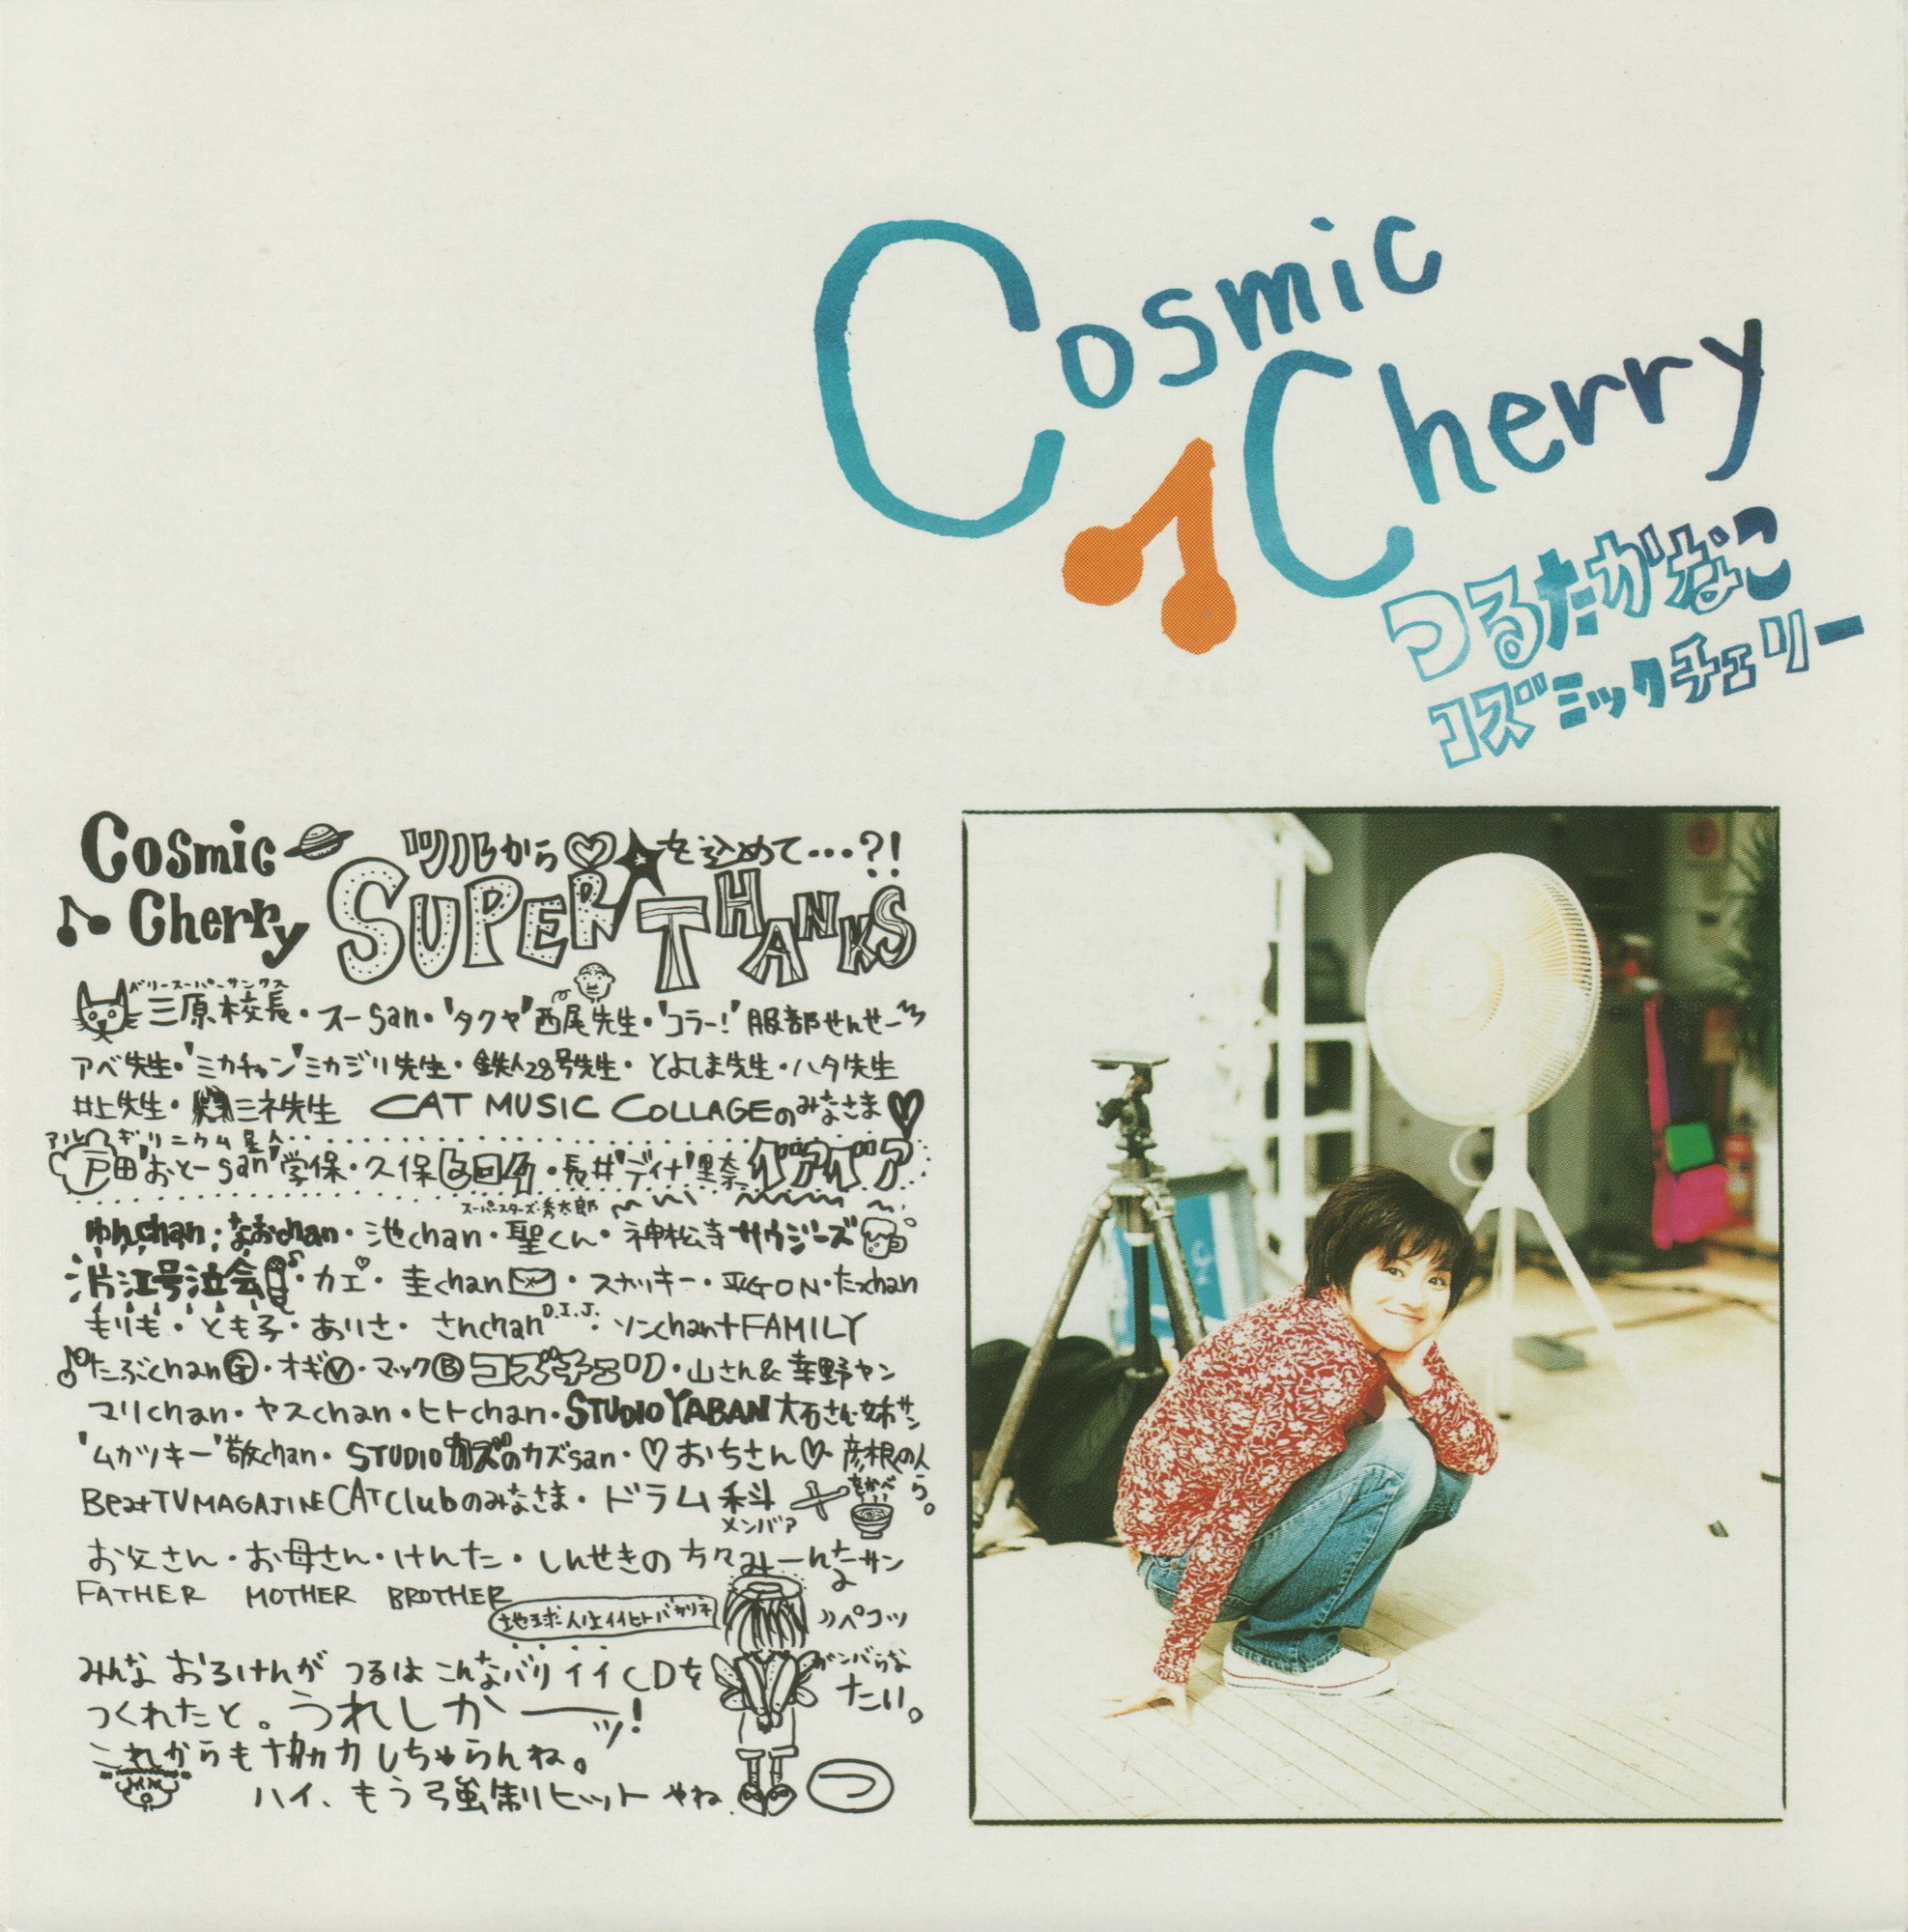 Cosmic
Cherry
つるたかなこ
コズミックチェリー
Cosmic
Cherry
ツルから♡★を込めて…?!
SUPER THANKS
ベリースーパーサンクス
三原校長・スーsan・'タクヤ'西尾先生・'コラー!'服部せんせー
アベ先生・'ミカチャン'ミカジリ先生・鉄人28号先生・とよしま先生・ハタ先生
井上先生・三ネ先生 CAT MUSIC COLLAGEのみなさま♥
戸田'おとーsan'学保・久保・長井'ディナ'里奈
スーパースターズ・秀太郎
ゆんchan・なおchan・池chan・聖くん・神松寺サウジーズ
片江号泣会・カエ・圭chan・スナッキー・平GON・たxchan
もりも・とも子・ありさ・さんchan D.I.J.・ソンchan+FAMILY
たぶchanⒼ・オギⓋ・マックⒷ・山さん&幸野ヤン
マリchan・ヤスchan・ヒトchan・STUDIO YABAN大石さん・姉サン
'ムカツキー'敬chan・STUDIOカズのカズsan・♡おちさん♡・彦根の人
Beat TV MAGAJINE CAT Clubのみなさま・ドラム科 ら。
メンバァ
お父さん・お母さん・けんた・しんせきの方々みーんなサン
FATHER MOTHER BROTHER
地球人はイイヒトバカリネ
ペコッ
みんなおるけんがつるはこんなバリイイCDを
つくれたと。うれしかーーッ!
これからも協力しちゃらんね。
ハイ、もう強制ヒットやね
ガンバらな
たい。
つ